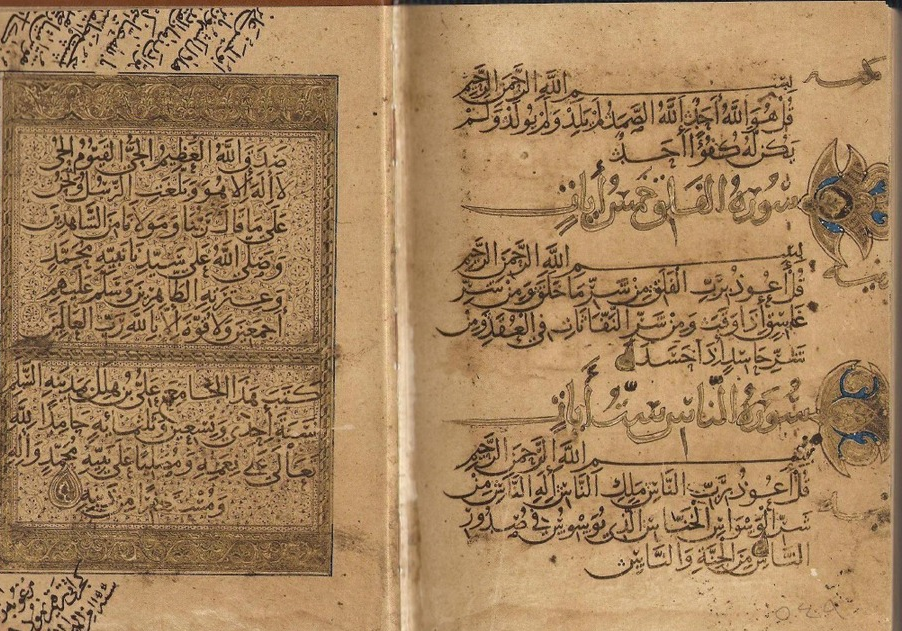 بسم الله الرحمن الرحيم
قل هو الله أحد الله الصمد لم يلد ولم يولد ولم
يكن له كفوا أحد
سورة الفلق خمس أيات
بسم الله الرحمن الرحيم
قل أعوذ برب الفلق من شر ما خلق ومن شر
غاسق إذا وقب ومن شر النفاثات في العقد ومن
شر حاسد إذا حسد
سورة الناس ست أيات
بسم الله الرحمن الرحيم
قل أعوذ برب الناس ملك الناس إله الناس من
شر الوسواس الخناس الذي يوسوس في صدور
الناس من الجنة والناس
صدق الله العظيم الحي القيوم الحي
لا إله إلا هو وبلغت الرسل ونحن
على ما قال ربنا ومولانا من الشاهدين
وصلى الله على نبيه محمد
وعترته الطاهرين وسلم عليهم
أجمعين ولا قوة إلا بالله رب العالمين
كتب هذا الجامع علي بن هلال بمدينة السلم
سنة أحدى وتسعين وثلثمائة حامدا لله
تعالى على نعمه ومصليا على نبيه محمد وآله
ومستغفرا من ذنبه